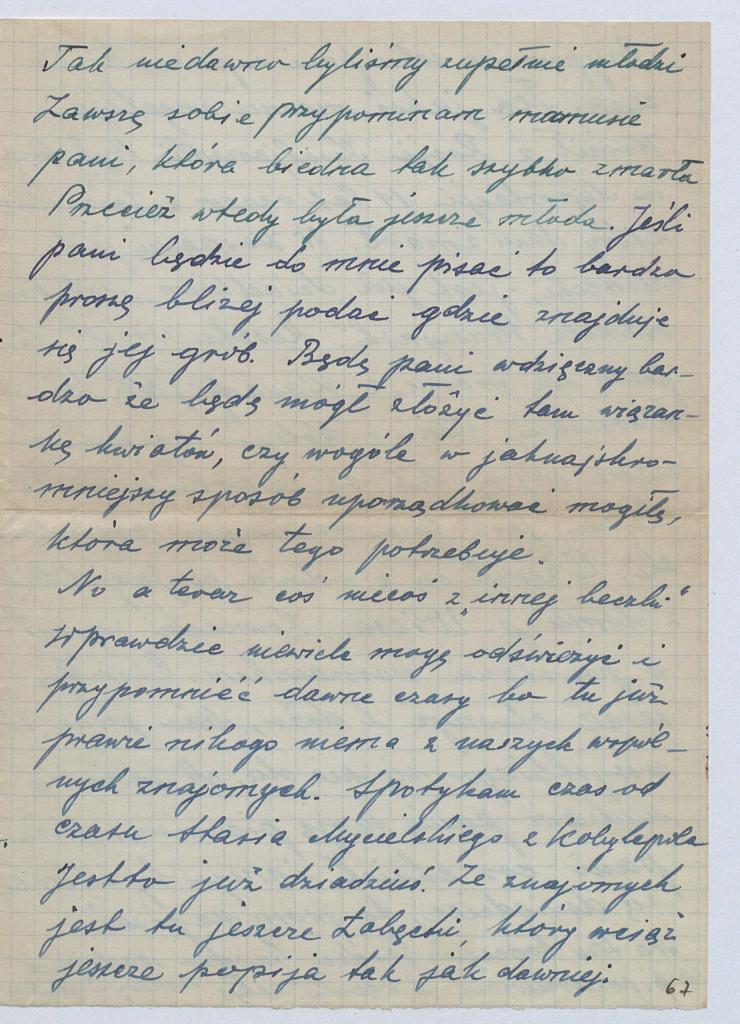 Tak niedawno byliśmy zupełnie młodzi
Zawszę sobie przypominam mamusie
pani, która biedna tak szybko zmarła
Przecież wtedy była jeszcze młoda. Jeśli
pani będzie do mnie pisać to bardzo
proszę bliżej podać gdzie znajduje
się jej grób. Będę pani wdzięczny bar-
dzo że będę mógł złożyć tam wiązan-
kę kwiatów, czy wogóle w jaknajskro-
mniejszy sposób uporządkować mogiłę,
która może tego potrzebuje.
No a teraz coś niecoś z „innej beczki"
Wprawdzie niewiele mogę odświeżyć i
przypomnieć dawne czasy bo tu już
prawie nikogo niema z naszych wspól-
nych znajomych. Spotykam czas od
czasu Stasia Mycielskiego z Kobylepola
Jestto już dziadziuś. Ze znajomych
jest tu jeszcze Łabęcki, który wciąż
jeszcze popija tak jak dawniej.
67